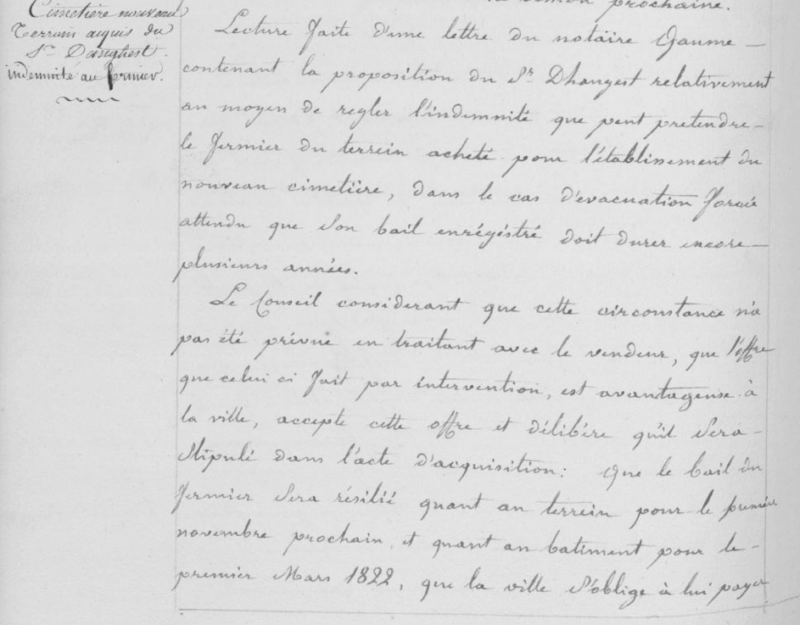 prochaine.
Cimetière nouveau
Terrain acquis du
Sr Danghest
indemnité au fermier.
Lecture faite d'une lettre du notaire Gaume –
contenant la proposition du Sr Dhangest relativement
au moyen de regler l'indemnité que peut pretendre –
le fermier du terrein acheté pour l'établissement du
nouveau cimetière, dans le cas d'evacuation forcée
attendu que son bail enrégéstré doit durer encore –
plusieurs années.
Le Conseil considerant que cette circonstance n'a
pas été prévue en traitant avec le vendeur, que l'offre
que celui ci fait par intervention, est avantageuse à
la ville, accepte cette offre et délibère qu'il sera –
stipulé dans l'acte d'acquisition: Que le bail du
fermier sera résilié quant au terrein pour le premier
novembre prochain, et quant au batiment pour le –
premier Mars 1822, que la ville s'oblige à lui payer